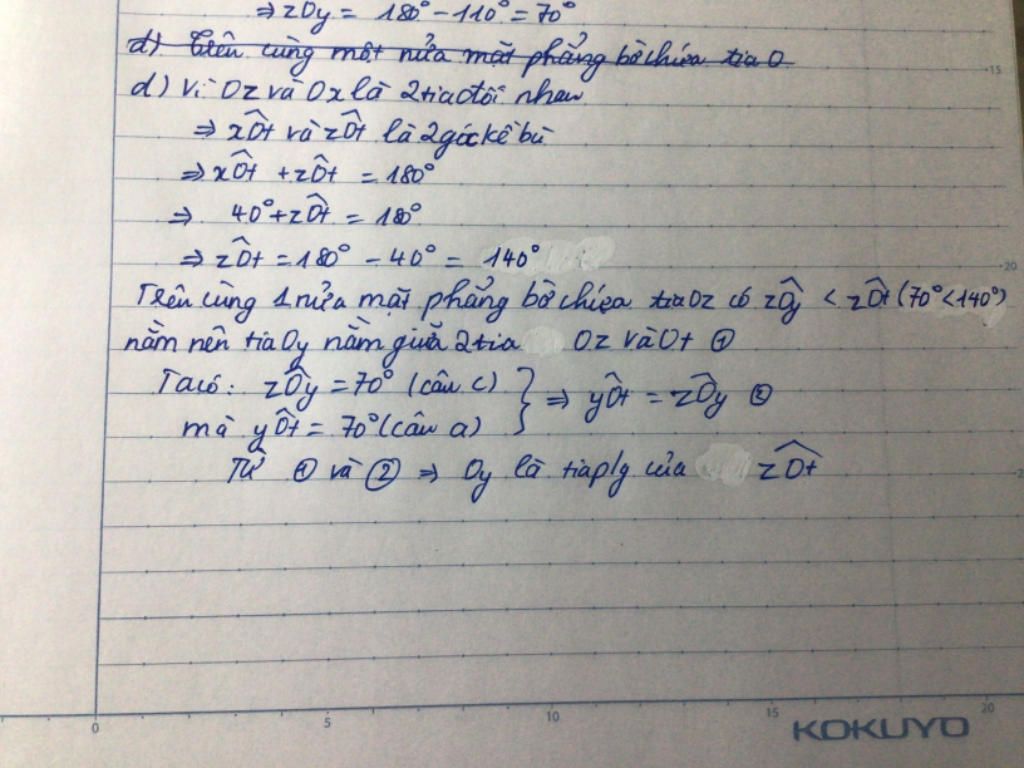 ⇒ zOy = 180° - 110° = 70°
d) Trên cùng một nửa mặt phẳng bờ chứa tia O
15
d) Vì Oz và Ox là 2 tia đối nhau
⇒ xÔt và zÔt là 2 góc kề bù
⇒ xÔt + zÔt = 180°
⇒ 40° + zÔt = 180°
⇒ zÔt = 180° - 40° = 140°
20
Trên cùng 1 nửa mặt phẳng bờ chứa tia Oz có zÔy < zÔt (70° < 140°)
nằm nên tia Oy nằm giữa 2 tia Oz và Ot ①
Ta có: zÔy = 70° (câu c)
mà yÔt = 70° (câu a)
} ⇒ yÔt = zÔy ②
Từ ① và ② ⇒ Oy là tia p/g của zÔt
0 5 10 15 20
KOKUYO